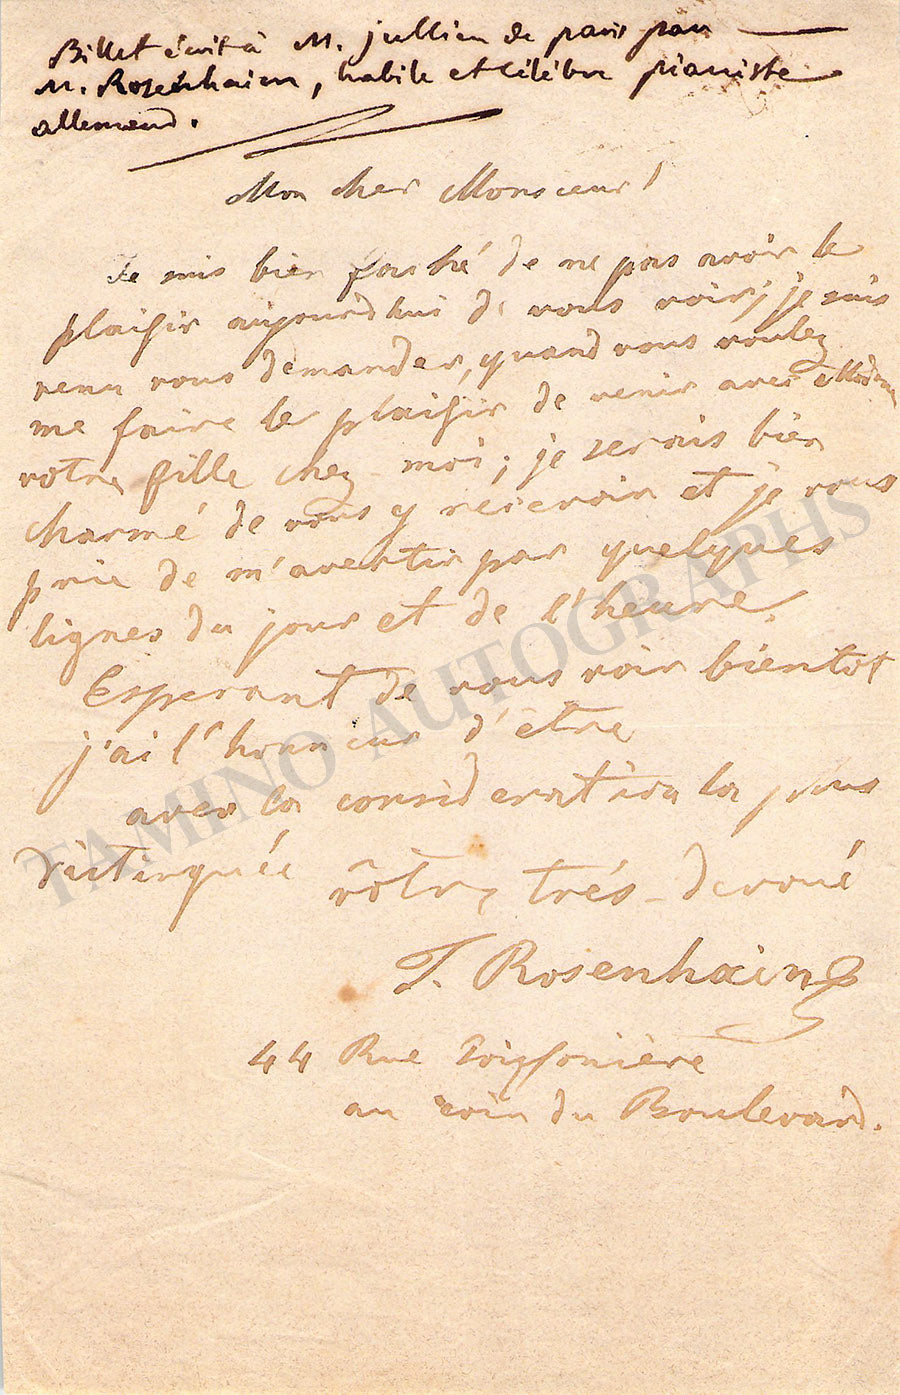 Billet écrit à M. Jullien de paris par
M. Rosenhaim, habile et célèbre pianiste
allemand.
Mon cher Monsieur!
Je suis bien faché de ne pas avoir le
plaisir aujourdhui de vous voir; je suis
venu vous demander, quand vous voulez
me faire le plaisir de venir avec Madame
votre fille chez moi; je serais bien
charmé de vous y recevoir et je vous
prie de m'avertir par quelques
lignes du jour et de l'heure
Esperant de vous voir bientot
j'ai l'honneur d'être
avec la consideration la plus
distinquée vôtre trés-devoué
J. Rosenhain
44 Rue Poissonière
au coin du Boulevard.
TAMINO AUTOGRAPHS